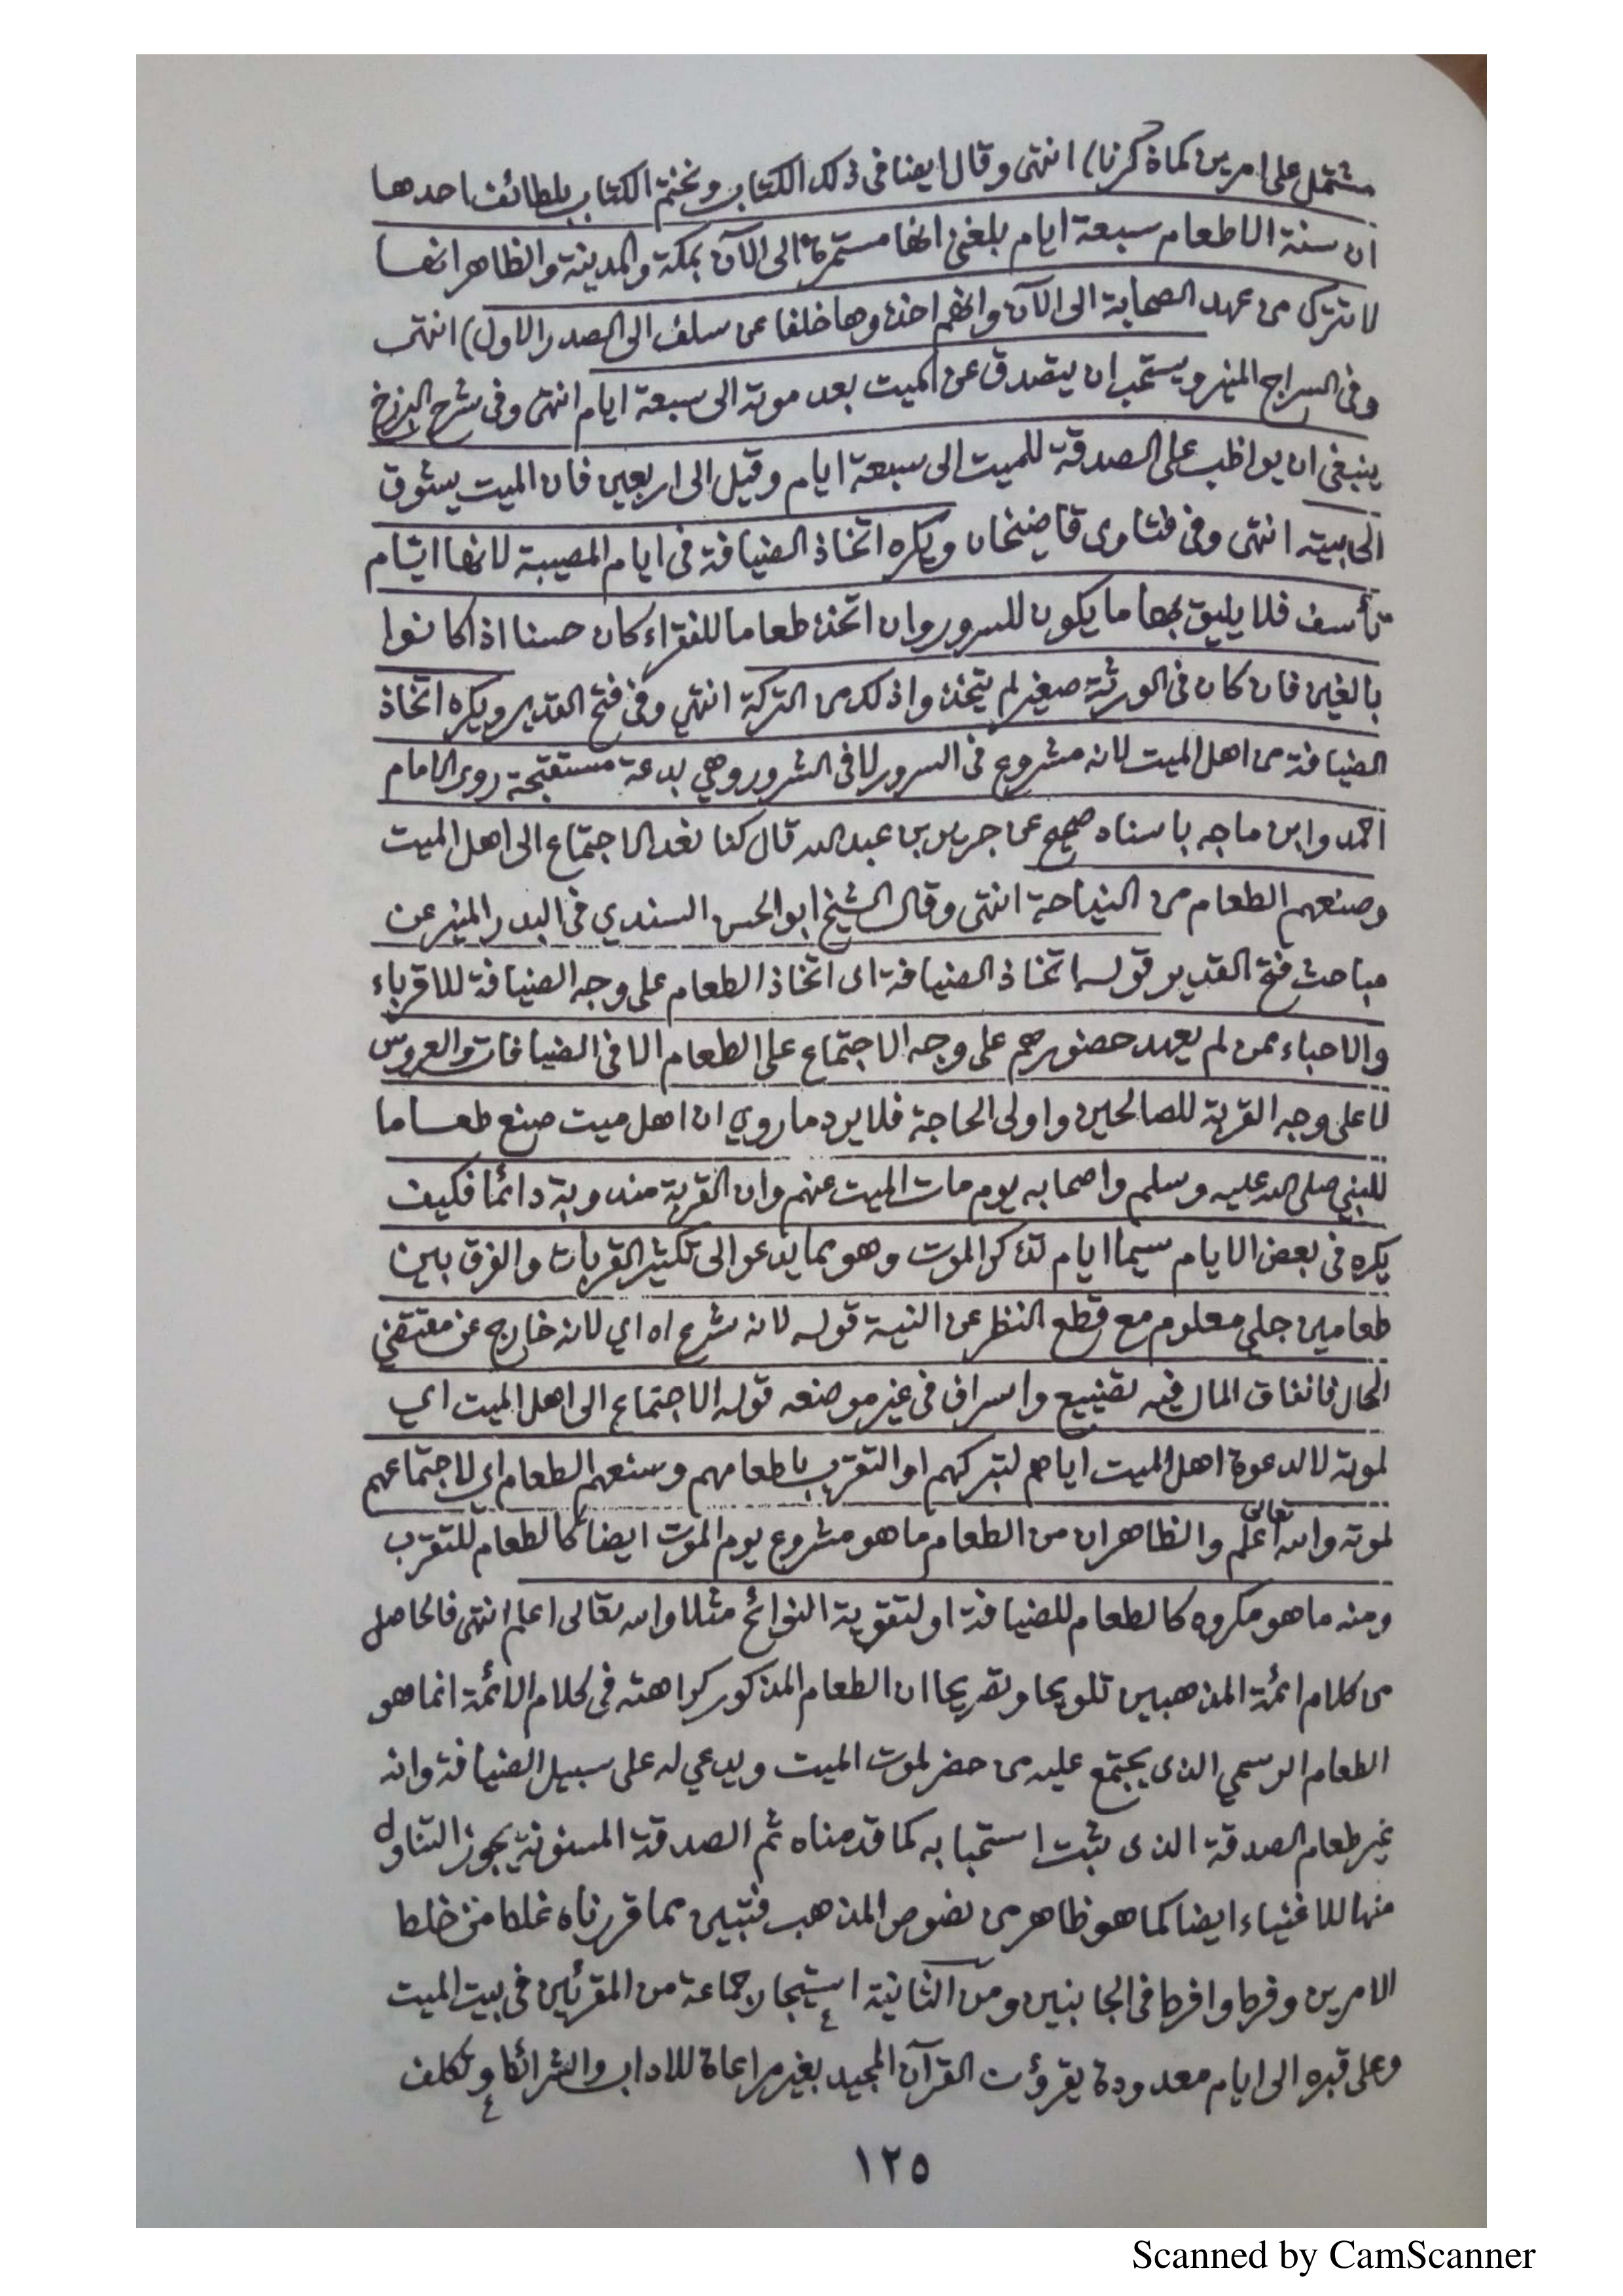 مشتمل على امرين كما ذكرنا) انتهى وقال ايضا فى ذلك الكتاب ونختم الكتاب بلطائف احدها
ان سنة الاطعام سبعة ايام بلغنى انها مستمرة الى الآن بمكة والمدينة والظاهر انها
لا تترك من عهد الصحابة الى الآن وانهم اخذوها خلفا عن سلف الى الصدر الاول) انتهى
وفى السراج المنير ويستحب ان يتصدق عن الميت بعد موته الى سبعة ايام انتهى وفى شرح البرزخ
ينبغى ان يواظب على الصدقة للميت الى سبعة ايام وقيل الى اربعين فان الميت يشوق
الى بيته انتهى وفى فتاوى قاضيخان ويكره اتخاذ الضيافة فى ايام المصيبة لانها ايام
تأسف فلا يليق بها ما يكون للسرور وان اتخذ طعاما للفقراء كان حسنا اذا كانوا
بالغين فان كان فى الورثة صغير لم يتخذوا ذلك من التركة انتهى وفى فتح القدير ويكره اتخاذ
الضيافة من اهل الميت لانه مشروع فى السرور لا فى الشرور وهي بدعة مستقبحة روى الامام
احمد وابن ماجه باسناد صحيح عن جرير بن عبد الله قال كنا نعد الاجتماع الى اهل الميت
وصنعهم الطعام من النياحة انتهى وقال الشيخ ابو الحسن السندي فى البدر المنير عن
مباحث فتح القدير قوله اتخاذ الضيافة اى اتخاذ الطعام على وجه الضيافة للاقرباء
والاحباء ممن لم يعهد حضورهم على وجه الاجتماع على الطعام الا فى الضيافات والعروس
لا على وجه القربة للصالحين واولى الحاجة فلا يرد ما روي ان اهل ميت صنع طعاما
للنبي صلى الله عليه وسلم واصحابه يوم مات الميت عنهم وان القربة مندوبة دائما فكيف
يكره فى بعض الايام سيما ايام تذكر الموت وهو مما يدعو الى تكثير القربات والفرق بين
طعامين جلي معلوم مع قطع النظر عن النية قوله لانه شرع اه اي لانه خارج عن مقتضى
الحال فانفاق المال فيه تضييع واسراف فى غير موضعه قوله الاجتماع الى اهل الميت اي
لموته لا لدعوة اهل الميت اياهم لتبركهم او التقرب باطعامهم وصنعهم الطعام اي لاجتماعهم
لموته والله تعالى اعلم والظاهر ان من الطعام ما هو مشروع يوم الموت ايضا كالطعام للتقرب
ومنه ما هو مكروه كالطعام للضيافة او لتقوية النوائح مثلا والله تعالى اعلم انتهى فالحاصل
من كلام ائمة المذهبين تلويحا وتصريحا ان الطعام المذكور كراهته فى كلام الائمة انما هو
الطعام الرسمي الذى يجتمع عليه من حضر لموت الميت ويدعي له على سبيل الضيافة وانه
غير طعام الصدقة الذى ثبت استحبابه كما قدمناه ثم الصدقة المسنونة يجوز التناول
منها للاغنياء ايضا كما هو ظاهر من نصوص المذهب فتبين مما قررناه غلط من خلط
الامرين وفرط وافرط فى الجانبين ومن الثانية استيجار جماعة من المقرئين فى بيت الميت
وعلى قبره الى ايام معدودة يقرؤن القرآن المجيد بغير مراعاة للاداب والشرائط وتكلف
١٢٥
Scanned by CamScanner